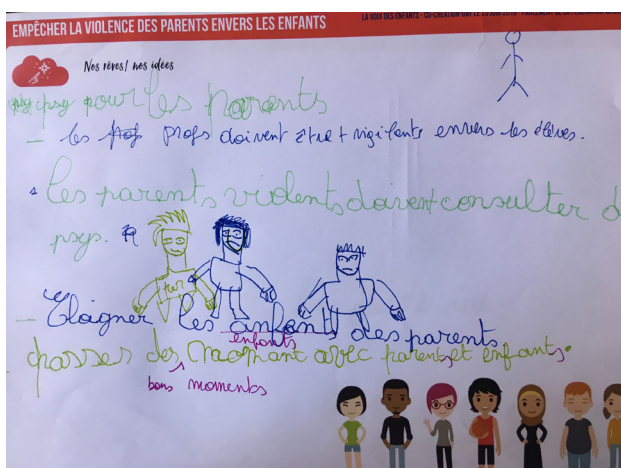 EMPÊCHER LA VIOLENCE DES PARENTS ENVERS LES ENFANTS
LA VOIX DES ENFANTS - CO-CREATION-DAY LE
Nos rêves/ nos idées
psy pour les parents
- les profs doivent être + vigilants envers les élèves.
les parents violents doivent consulter d
psys.
- Eloigner les anfants des parents
enfants
passer des momant avec parents et enfants.
bons moments